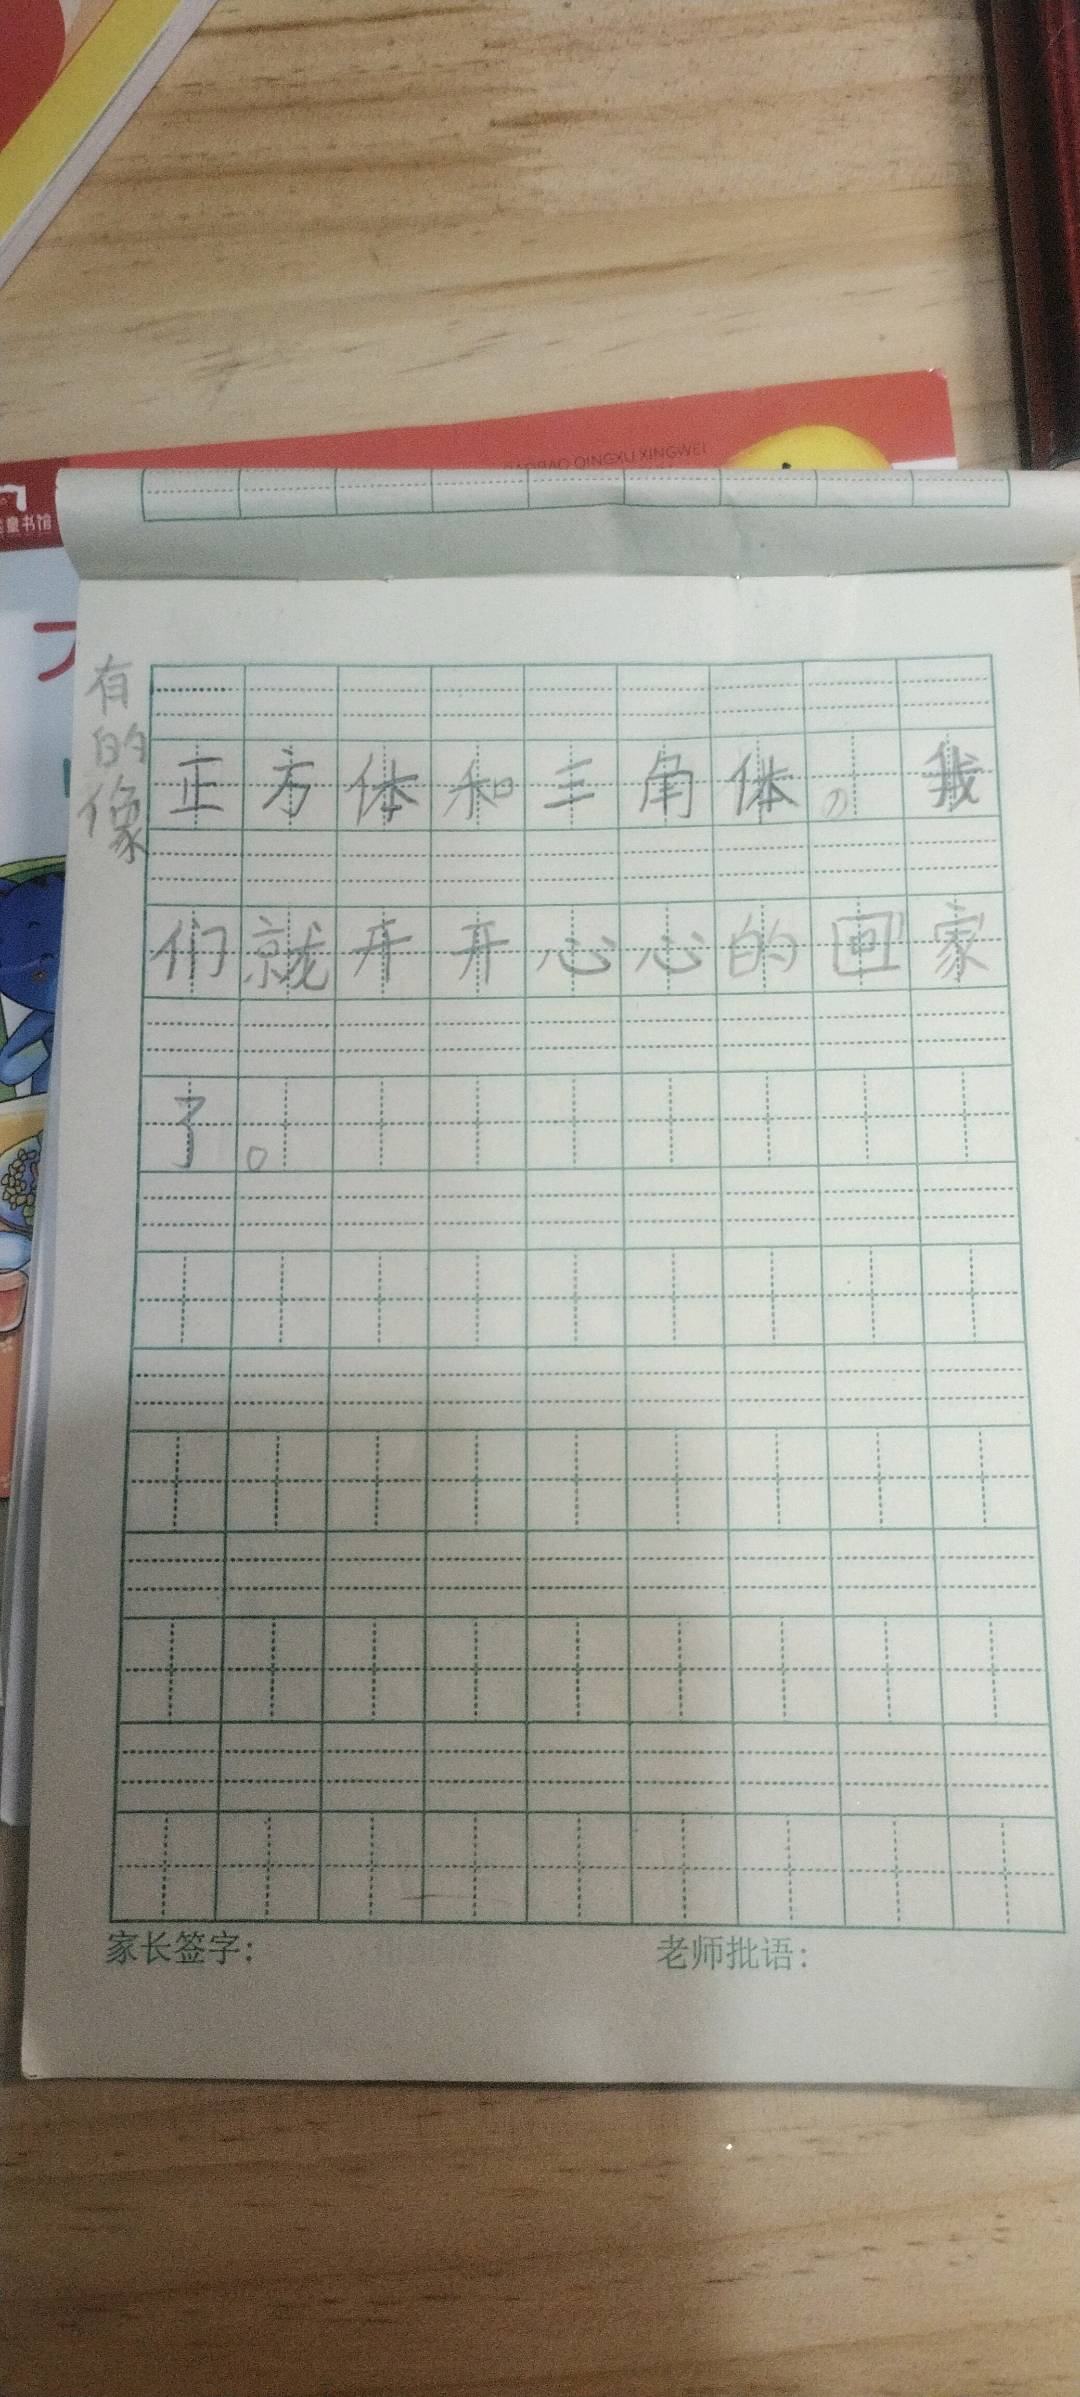 BAOBAO QINGXU XINGWEI
童书馆
有的像
正方体和三角体。我
们就开开心心的回家
了。
家长签字:
老师批语: